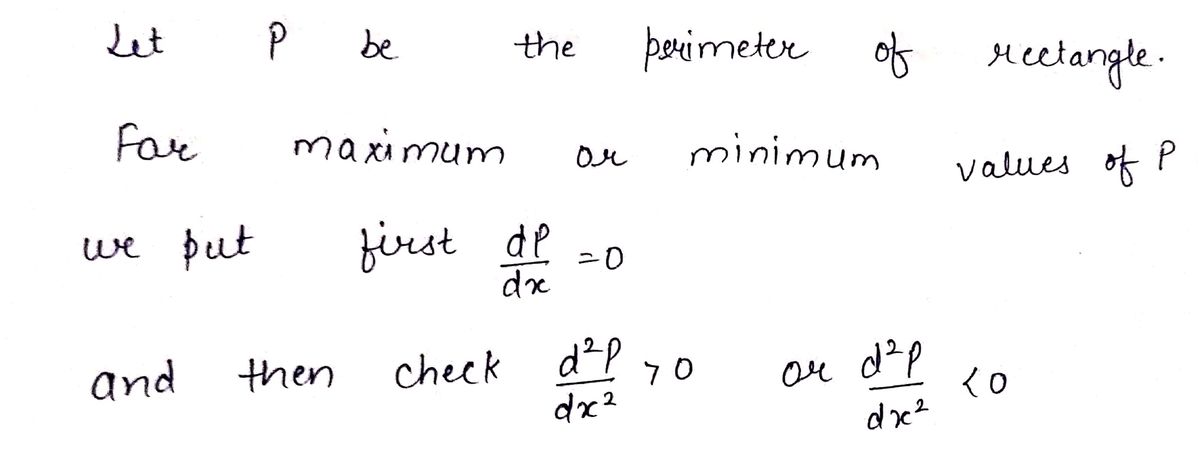 Let P be the perimeter of rectangle.
For maximum or minimum values of P
we put first dP/dx = 0
and then check d²P/dx² > 0 or d²P/dx² < 0